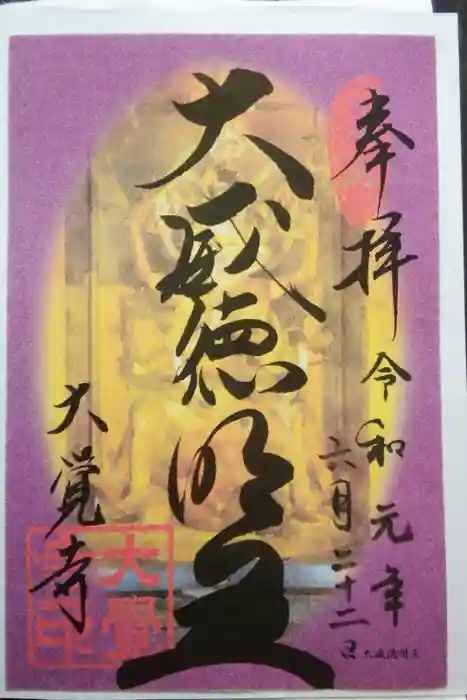 奉拝
令和元年
六月二十二日
大威徳明王
大覺寺
大覺寺印
大威徳明王